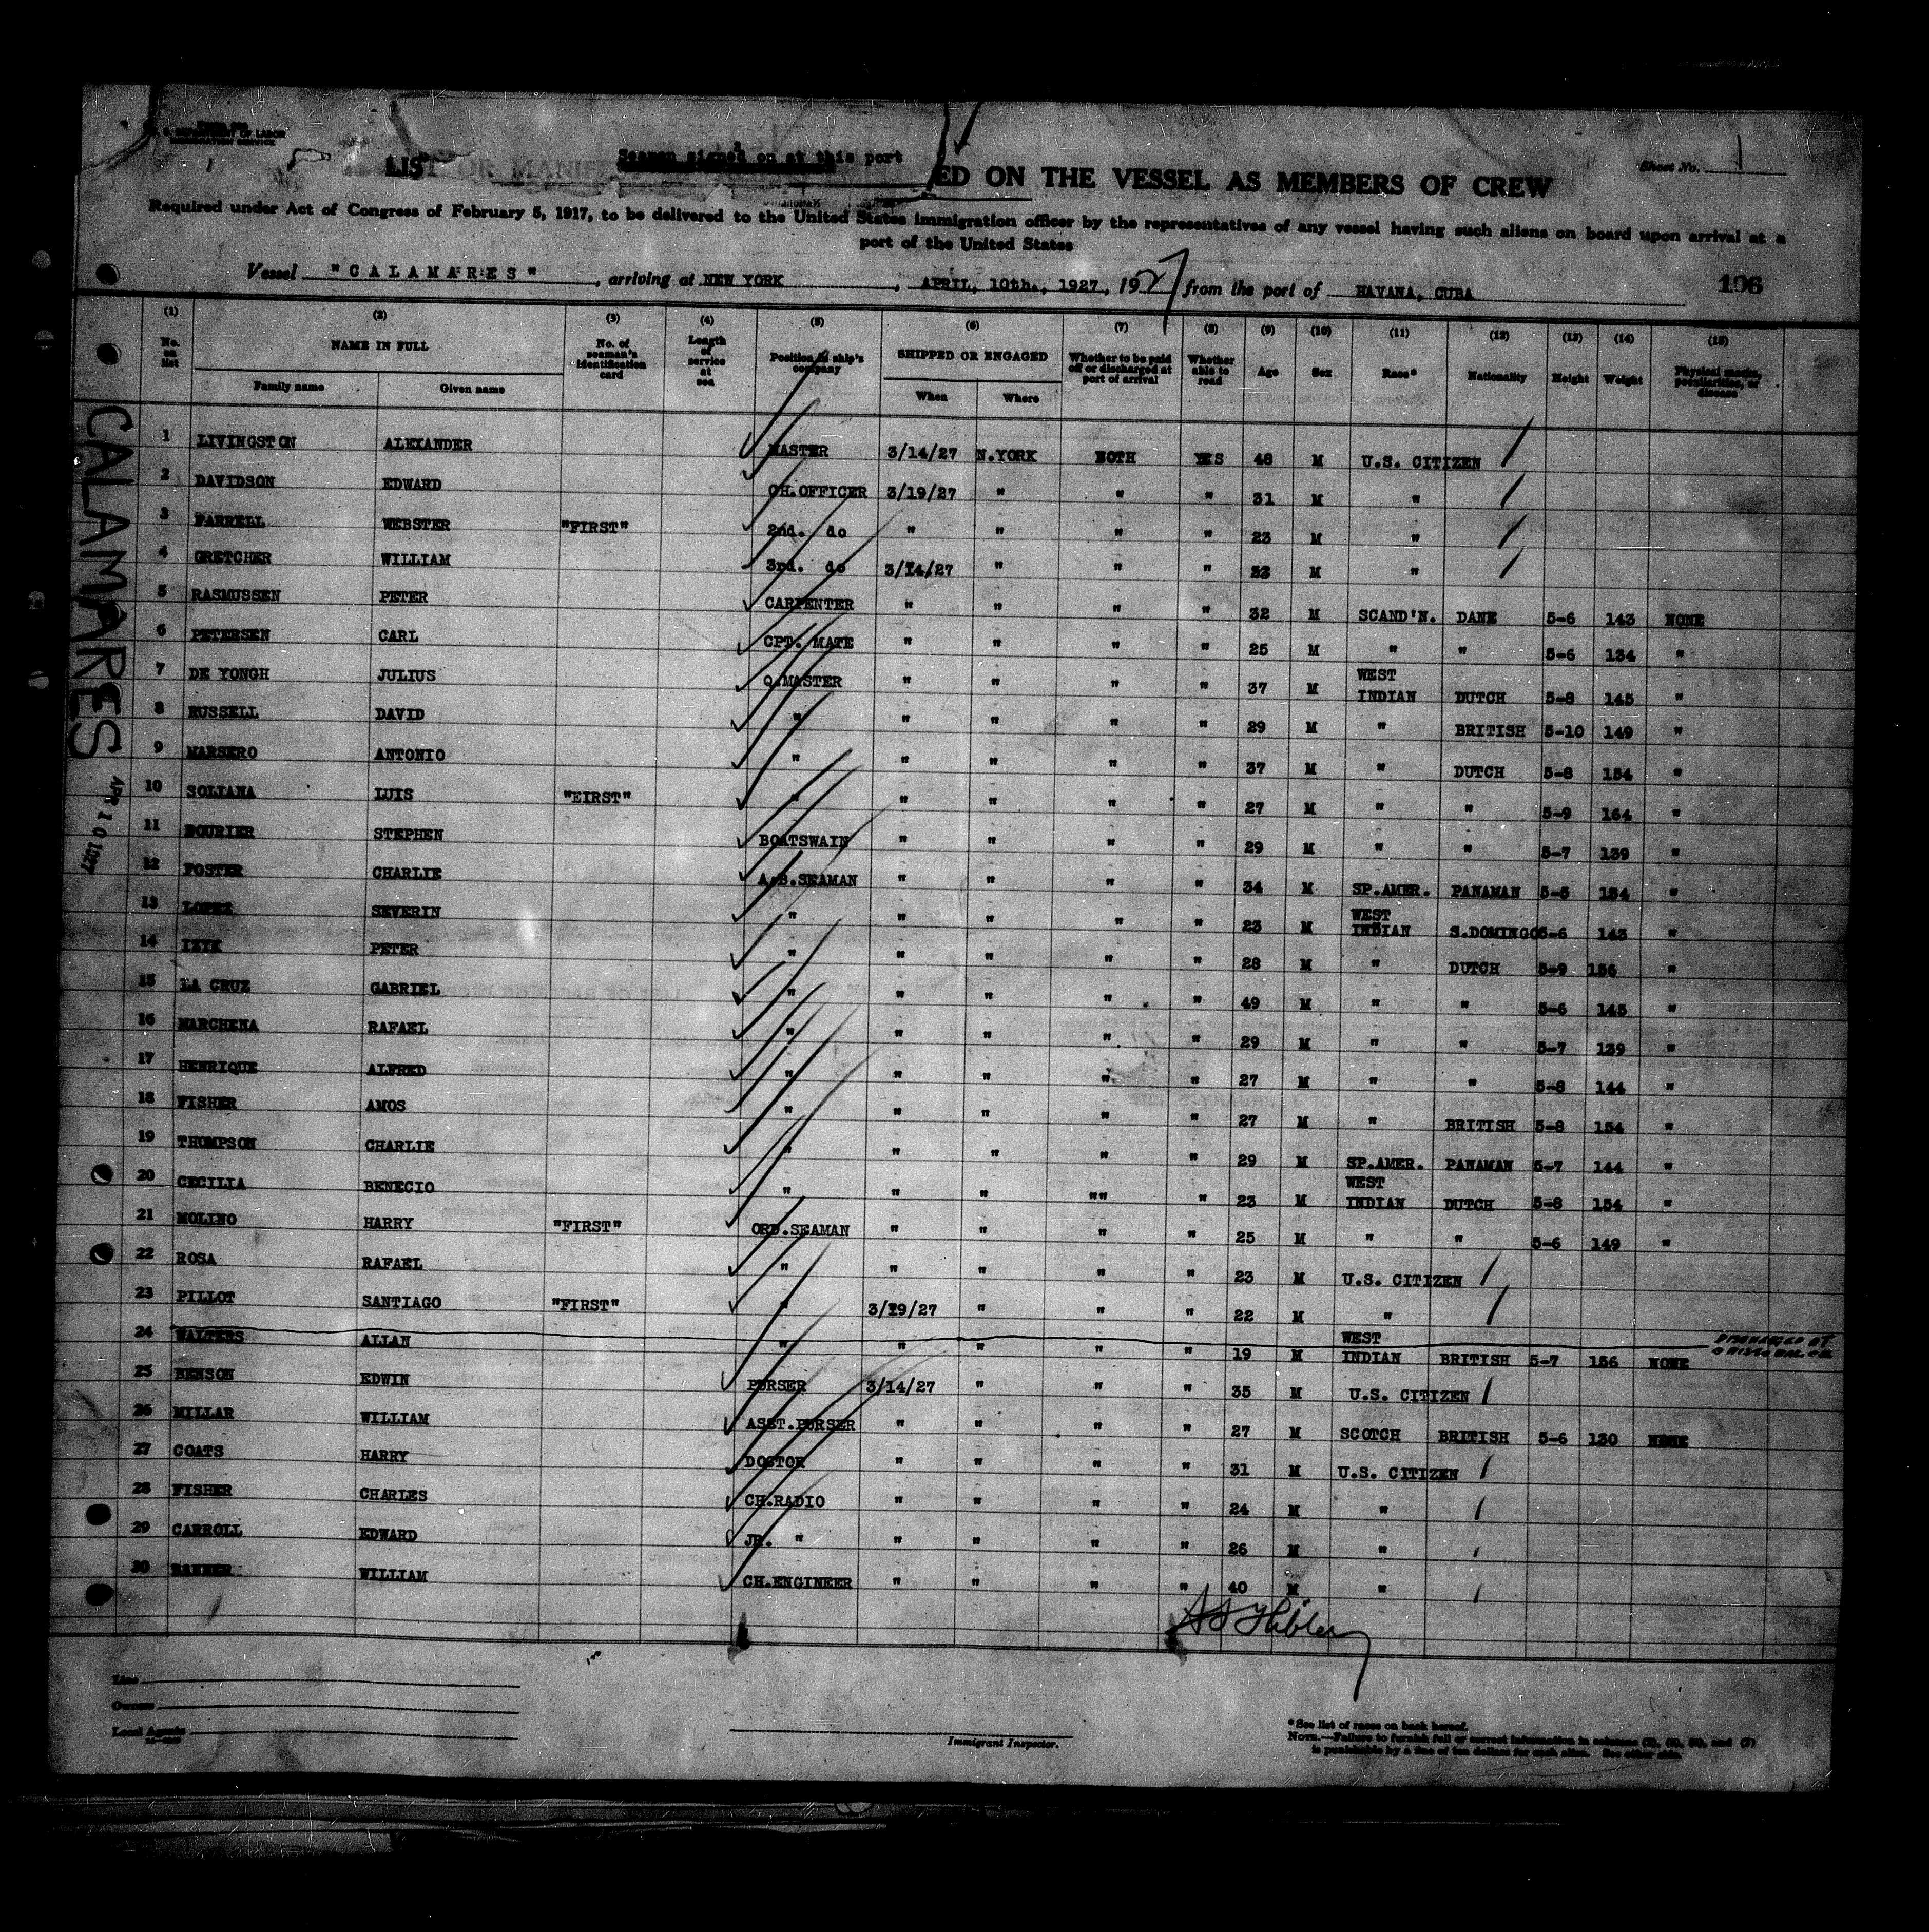 U. S. DEPARTMENT OF LABOR
IMMIGRATION SERVICE
Seamen signed on at this port
Sheet No. 1
LIST OR MANIFEST ED ON THE VESSEL AS MEMBERS OF CREW
Required under Act of Congress of February 5, 1917, to be delivered to the United States immigration officer by the representatives of any vessel having such aliens on board upon arrival at a
port of the United States
Vessel "CALAMARES", arriving at NEW YORK, APRIL, 10th., 1927, 1927 from the port of HAVANA, CUBA 106
(1) (2) (3) (4) (5) (6) (7) (8) (9) (10) (11) (12) (13) (14) (15)
No. on list NAME IN FULL No. of seaman's identification card Length of service at sea Position in ship's company SHIPPED OR ENGAGED Whether to be paid off or discharged at port of arrival Whether able to read Age Sex Race* Nationality Height Weight Physical marks, peculiarities, or disease
Family name Given name When Where
1 LIVINGSTON ALEXANDER MASTER 3/14/27 N.YORK BOTH YES 48 M U.S. CITIZEN
2 DAVIDSON EDWARD CH.OFFICER 3/19/27 " " " 31 M "
3 FARRELL WEBSTER "FIRST" 2nd. do " " " " 23 M "
4 GRETCHER WILLIAM 3rd. do 3/14/27 " " " 23 M "
5 RASMUSSEN PETER CARPENTER " " " " 32 M SCAND'N. DANE 5-6 143 NONE
6 PETERSEN CARL CPT. MATE " " " " 25 M " " 5-6 134 "
7 DE YONGH JULIUS Q.MASTER " " " " 37 M WEST INDIAN DUTCH 5-8 145 "
8 RUSSELL DAVID " " " " " 29 M " BRITISH 5-10 149 "
9 MARSERO ANTONIO " " " " " 37 M " DUTCH 5-8 154 "
10 SOLIANA LUIS "EIRST" " " " " " 27 M " " 5-9 164 "
11 BOURIER STEPHEN BOATSWAIN " " " " 29 M " " 5-7 139 "
12 FOSTER CHARLIE A.B.SEAMAN " " " " 34 M SP.AMER. PANAMAN 5-5 154 "
13 LOPEZ SEVERIN " " " " " 23 M WEST INDIAN S.DOMINGO 5-6 143 "
14 IZYK PETER " " " " " 28 M " DUTCH 5-9 156 "
15 LA CRUZ GABRIEL " " " " " 49 M " " 5-6 145 "
16 MARCHENA RAFAEL " " " " " 29 M " " 5-7 139 "
17 HENRIQUE ALFRED " " " " " 27 M " " 5-8 144 "
18 FISHER AMOS " " " " " 27 M " BRITISH 5-8 154 "
19 THOMPSON CHARLIE " " " " " 29 M SP.AMER. PANAMAN 5-7 144 "
20 CECILIA BENECIO " " " "" " 23 M WEST INDIAN DUTCH 5-8 154 "
21 MOLINO HARRY "FIRST" ORD.SEAMAN " " " " 25 M " " 5-6 149 "
22 ROSA RAFAEL " " " " " 23 M U.S. CITIZEN
23 PILLOT SANTIAGO "FIRST" " 3/19/27 " " " 22 M "
24 WALTERS ALLAN " " " " " 19 M WEST INDIAN BRITISH 5-7 156 NONE DISCHARGED AT
25 BENSON EDWIN PURSER 3/14/27 " " " 35 M U.S. CITIZEN
26 MILLAR WILLIAM ASST.PURSER " " " " 27 M SCOTCH BRITISH 5-6 130 NONE
27 COATS HARRY DOCTOR " " " " 31 M U.S. CITIZEN
28 FISHER CHARLES CH.RADIO " " " " 24 M "
29 CARROLL EDWARD JR. " " " " " 26 M "
30 WILLIAM CH.ENGINEER " " " " 40 M "
CALAMARES
APR 10 1927
Line
Owners
Local Agents
Immigrant Inspector.
*See list of races on back hereof.
NOTE.—Failure to furnish full or correct information in columns (2), (5), (6), and (7)
is punishable by a fine of ten dollars for each alien. See other side.